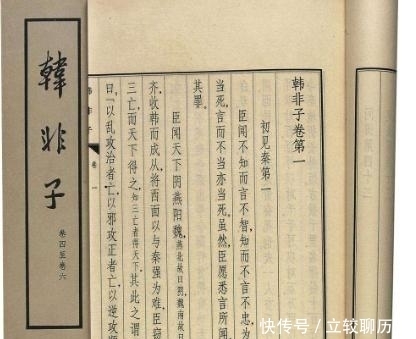 韓非子
卷四至卷六
韩非子卷第一
初见秦第一
臣闻不知而言不智知而不言不忠
当死言而不当亦当死虽然臣愿悉言所闻
其罪
臣闻天下阴燕阳魏燕北故曰阴魏南故曰
齐收韩而成从将西面以与秦强为难臣窃
三亡而天下得之知三亡者得天下其此之谓
曰「以乱攻治者亡以邪攻正者亡以逆攻顺
韩非子 卷一
快传号/立较聊历